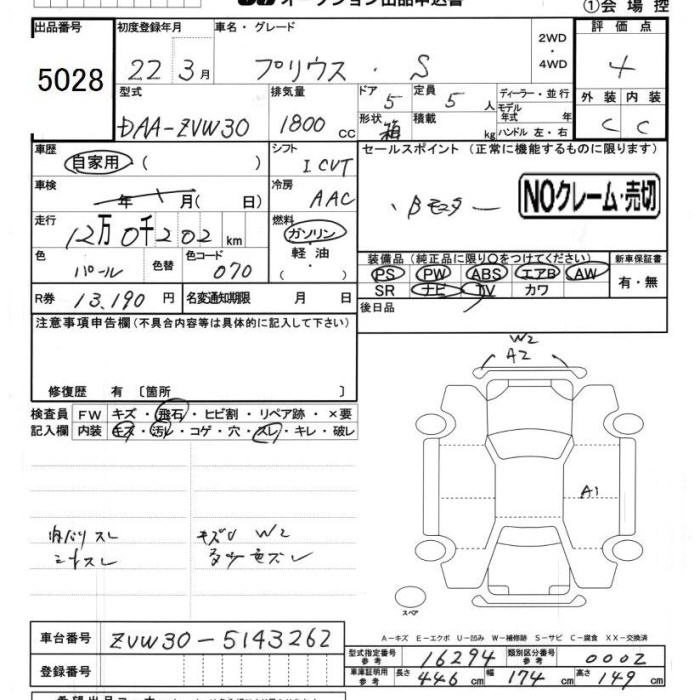 オークション出品申込書
①会場控
出品番号
5028
初度登録年月
22 3月
車名・グレード
プリウス・S
2WD
・
4WD
評価点
4
外装 内装
C C
型式
DAA-ZVW30
排気量
1800 cc
ドア 5
定員 5 人
形状 箱
積載 kg
ディーラー・並行
モデル
年式 年
ハンドル 左・右
車歴
自家用 ( )
シフト
I CVT
車検
年 月( 日)
冷房
AAC
走行
12万0千202 km
燃料
ガソリン
・
軽油
( )
色
パール
色替
色コード
070
セールスポイント (正常に機能するものに限ります)
NOクレーム・売切
装備品 (純正品に限り○をつけてください)
PS PW ABS エアB AW
SR ナビ TV カワ
新車保証書
有・無
R券 13,190 円
名変通知期限 月 日
後日品
注意事項申告欄(不具合内容等は具体的に記入して下さい)
修復歴 有〔箇所 〕
検査員 FW キズ・飛石・ヒビ割・リペア跡・×要
記入欄 内装 キズ・汚レ・コゲ・穴・スレ・キレ・破レ
W2
A2
A1
内バリスレ
キズU W2
シートスレ
スペア
A−キズ E−エクボ U−凹み W−補修跡 S−サビ C−腐食 XX−交換済
車台番号
ZVW30-5143262
登録番号
型式指定番号
参考
16294
類別区分番号
参考
0002
車庫証明用
参考
長さ 446 cm 幅 174 cm 高さ 149 cm